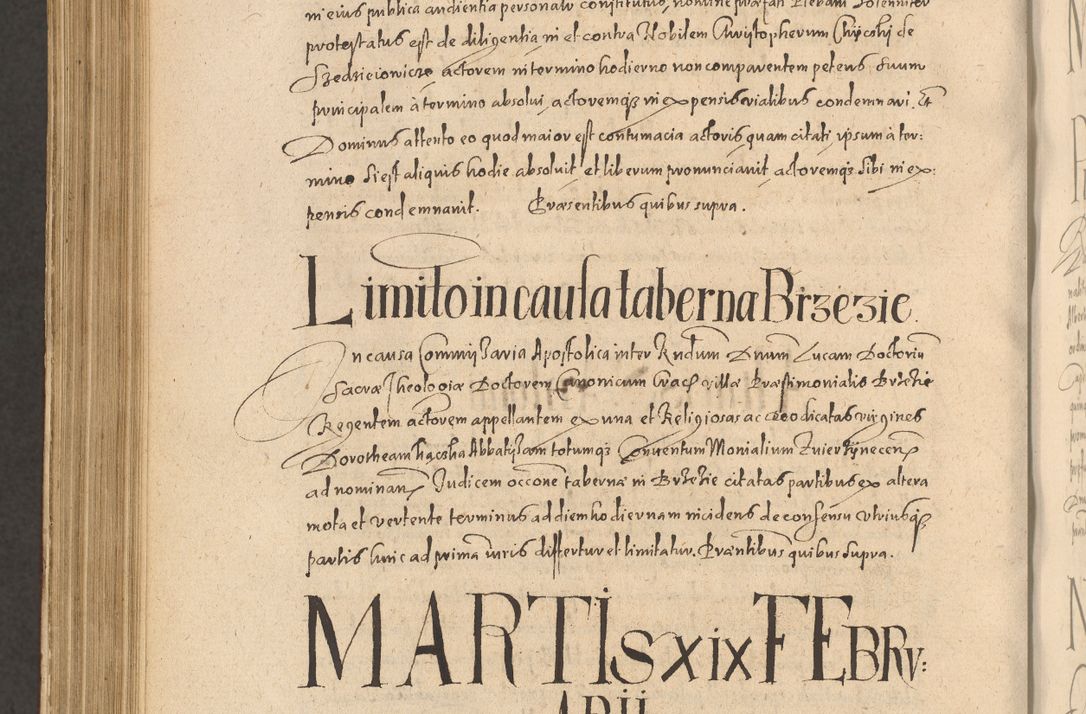 in eius publica audientia personalr constitutus, nomine præfati Plebani solenniter
protestatus est de diligentia in et contra Nobilem Christopherum Chÿcski de
actorem in termino hodierno non comparentem petens suum
principalem à termino absolvi, actoremq3 in expensis vialibus condemnari. Et
Dominus attento eo quod maior est contumacia actoris quam citati ipsum à ter:
mino si est aliquis hodie absoluit et liberum pronunciauit actoremq3 sibi in ex:
pensis condemnauit. Præsentibus quibus supra.
Limito in causa taberna Brzezie.
In causa Commissaria Apostolica inter Rndum Dnum Lucam Doctorium
Sacræ Theologiæ Doctorem Canonicum Crac villæ Præstimonialis Brzezie
Regentem actorem appellantem ex una et Religiosas ac Deo dicatas virgines
Dorotheam Abbatissam totumq3 Conuentum Monialium
ad nominan Iudicem occone tabernæ in Brzezie citatas partibus ex altera
mota et vertente terminus ad diem hodiernam incidens de consensu vtriusq3
partis hinc ad prima iuris differtur et limitatur. Præntibus quibus supra.
MARTIS XIX FEBRV:
ARII